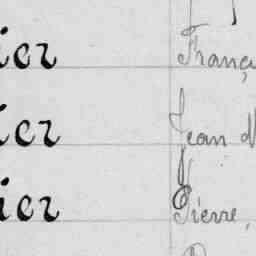 ier Franç
ier Jean
ier Pierre,